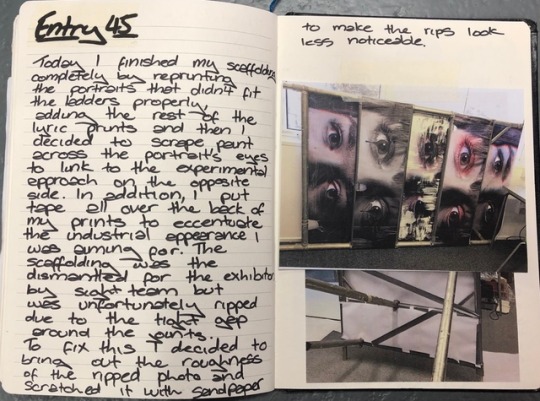 Entry 45
Today I finished my scaffolding
completely by reprunting
the portraits that didn't fit
the ladders properly,
adding the rest of the
lyric prunts and then I
decided to scrape paint
across the portrait's eyes
to link to the experimental
approach on the opposite
side. In addition, I put
tape all over the back of
my prints to eccentuate
the industrial appearance I
was aiming for. The
scaffolding was the
dismantled for the exhibition
by team but
was unfortunately ripped
due to the tight gap
around the
To fix this I decided to
bring out the roughness
of the ripped photo and
scratched it with sandpaper
to make the rips look
less noticeable.